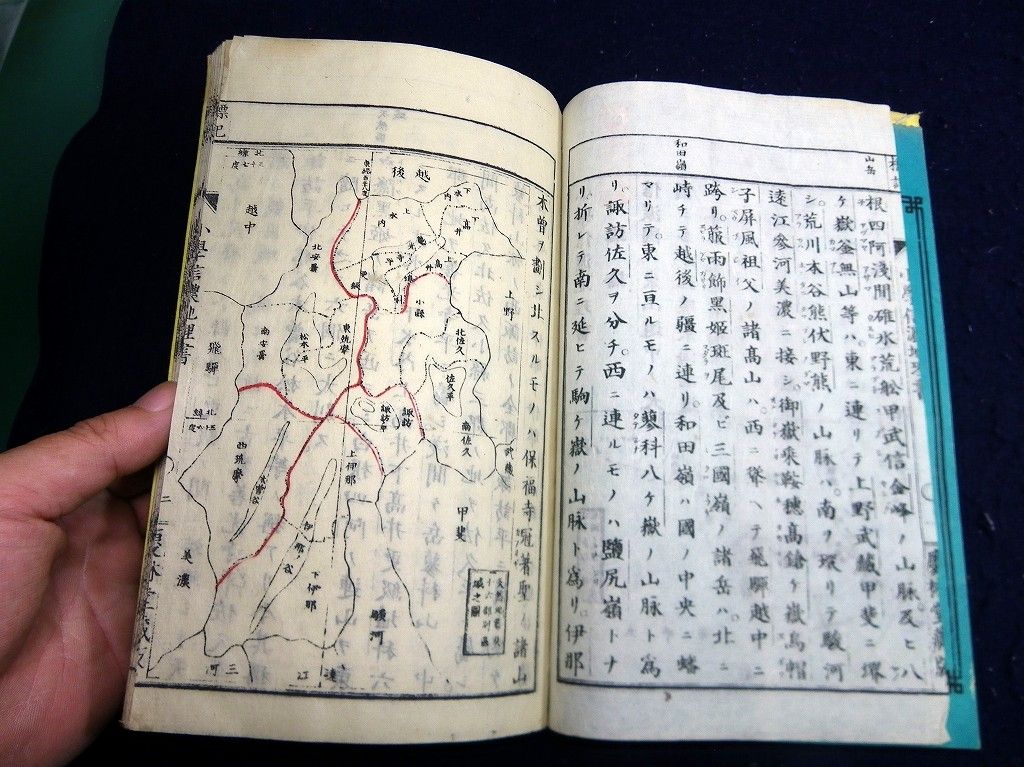 山岳
根四阿淺間碓氷荒船甲武信金峰ノ山脈及ヒ八
ケ嶽釜無山等ハ東ニ連リテ上野武藏甲斐ニ堺
シ荒川本谷熊伏野熊ノ山脈ハ南ヲ環リテ駿河
遠江參河美濃ニ接シ御嶽乘鞍穗高鎗ケ嶽烏帽
子屏風祖父ノ諸高山ハ西ニ聳ヘテ飛驒越中ニ
跨リ箙雨飾黑姬斑尾及ヒ三國嶺ノ諸岳ハ北ニ
峙チテ越後ノ疆ニ連リ和田嶺ハ國ノ中央ニ蟠
和田嶺
マリテ東ニ亘ルモノハ蓼科八ケ嶽ノ山脈ト爲
リ諏訪佐久ヲ分チ西ニ連ルモノハ鹽尻嶺トナ
リ折レテ南ニ延ヒテ駒ケ嶽ノ山脈ト爲リ伊那
木曾ヲ劃シ北スルモノハ保福寺冠著聖ノ諸山
越後
越中
北安曇
上水内
下水内
下高井
上高井
更級
埴科
小縣
上野
北佐久
佐久平
南佐久
武藏
東筑摩
松本平
南安曇
飛驒
諏訪
諏訪平
上伊那
西筑摩
木曾谷
伊那ノ谷
下伊那
甲斐
駿河
美濃
三河
遠江
標記
小學信濃地理書